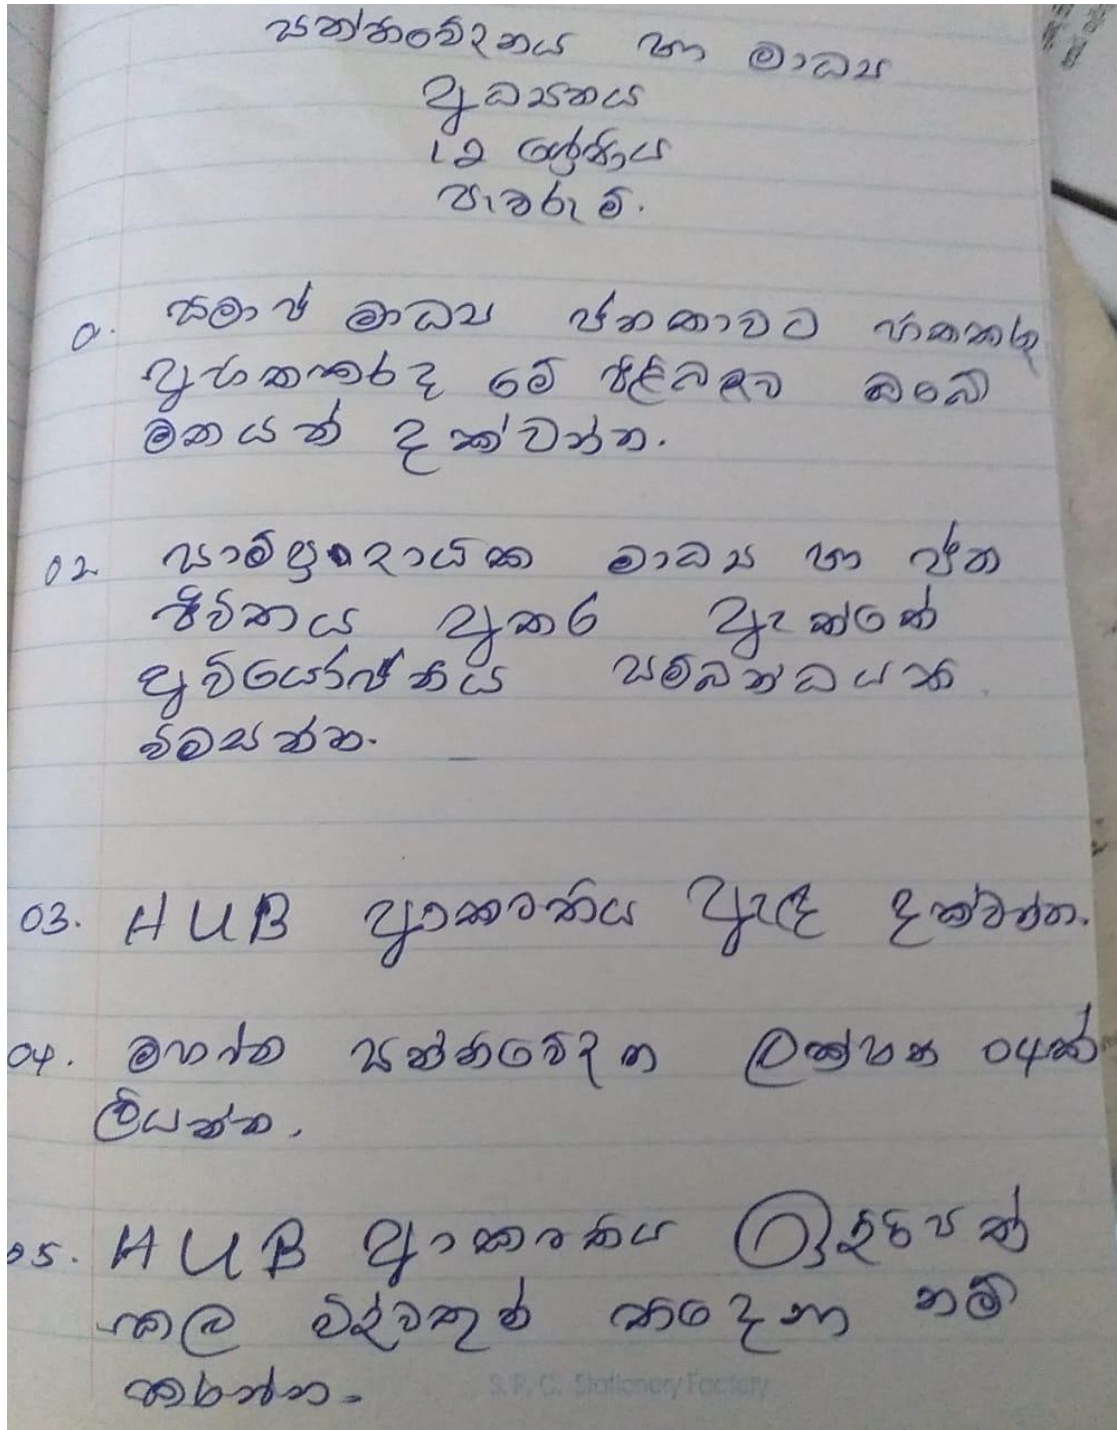 සන්නිවේදනය හා මාධ්‍ය
අධ්‍යනය
12 ශ්‍රේණිය
පැවරුම්.
සමාජ මාධ්‍ය ජනතාවට හිතකරද
අහිතකරද මේ පිළිබඳව ඔබේ
මතයන් දක්වන්න.
02 සාම්ප්‍රදායික මාධ්‍ය හා ජන
ජීවිතය අතර ඇත්තේ
අවියෝජනීය සම්බන්ධයකි
විමසන්න.
03. HUB ආකෘතිය ඇඳ දක්වන්න.
04. මහජන සන්නිවේදන ලක්ෂන 04ක්
ලියන්න.
05. HUB ආකෘතිය ඉදිරිපත්
කල විද්වතුන් තිදෙනා නම්
කරන්න.
S. P. C. Stationery Factory